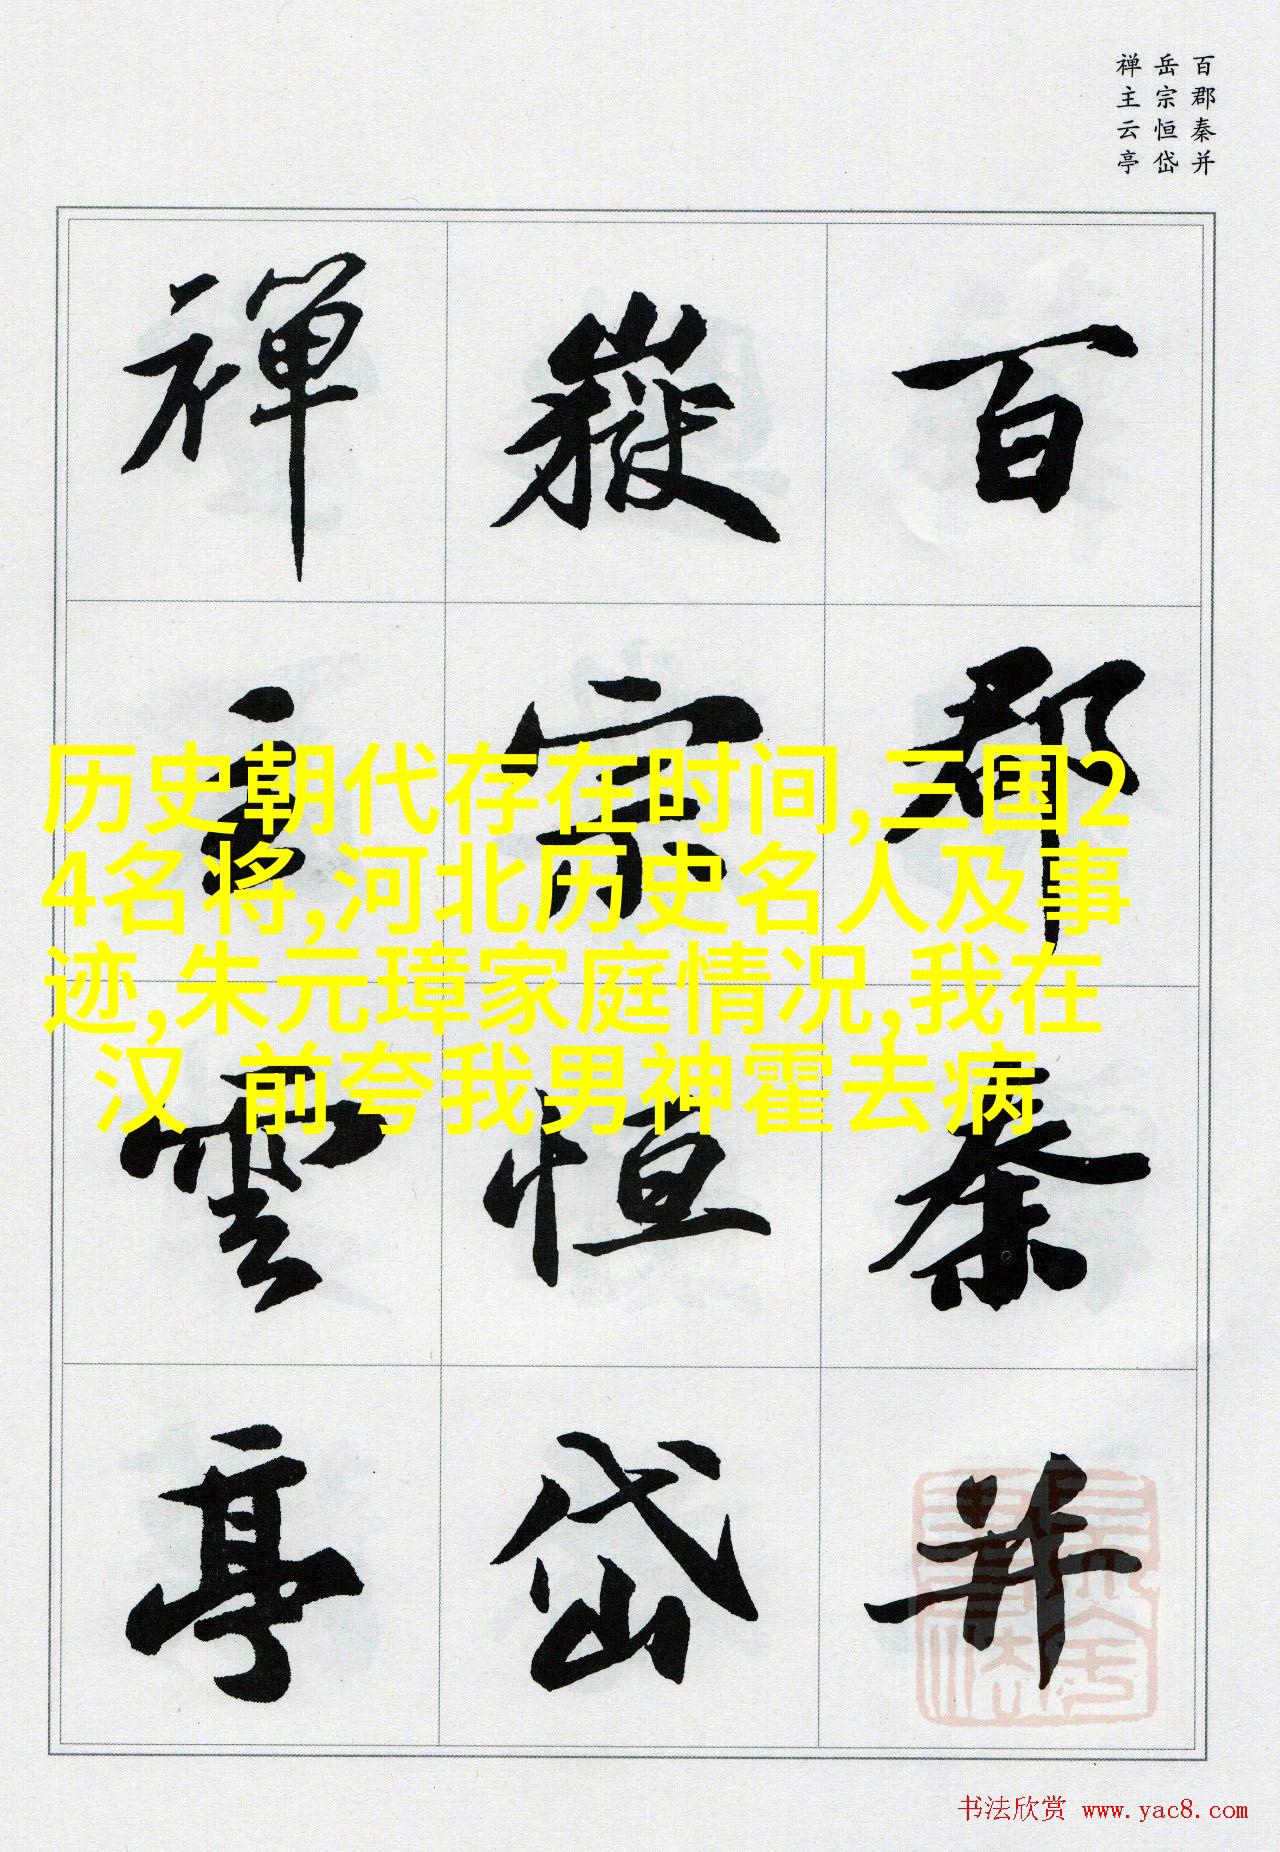 百郡秦并
岳宗恒岱
禅主云亭
百郡秦并
嶽宗恒岱
禪主雲亭
历史朝代存在时间,三国2
4名将,河北历史名人及事
迹,朱元璋家庭情况,我在
汉 前夸我男神霍去病
书法欣赏 www.yac8.com